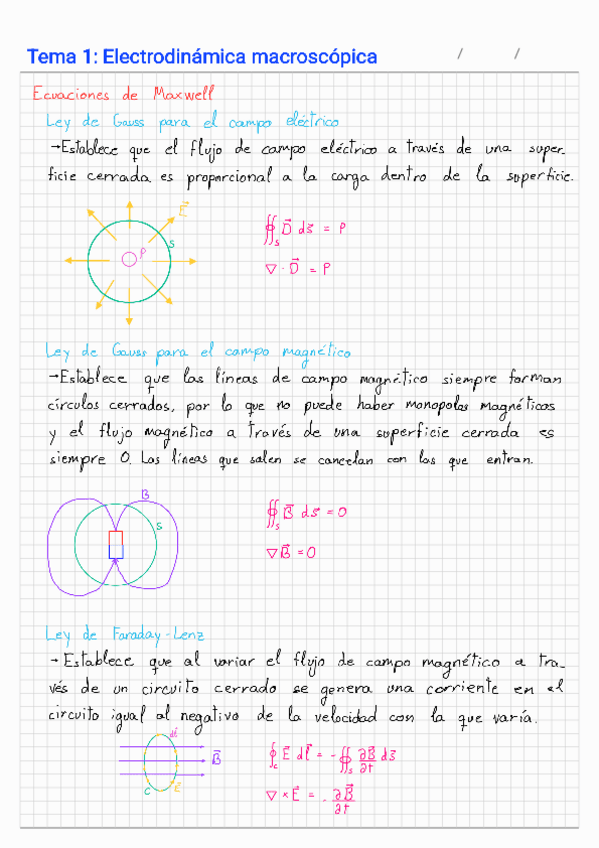 Tema 1: Electrodinámica macroscópica / /
Ecuaciones de Maxwell
Ley de Gauss para el campo eléctrico
→Establece que el flujo de campo eléctrico a través de una super-
ficie cerrada es proporcional a la carga dentro de la superficie.
E⃗
S
ρ
∯_S D⃗ ds⃗ = ρ
∇ · D⃗ = ρ
Ley de Gauss para el campo magnético
→Establece que las líneas de campo magnético siempre forman
círculos cerrados, por lo que no puede haber monopolos magnéticos
y el flujo magnético a través de una superficie cerrada es
siempre 0. Las líneas que salen se cancelan con las que entran.
B
S
∯_S B⃗ ds⃗ = 0
∇B⃗ = 0
Ley de Faraday-Lenz
→ Establece que al variar el flujo de campo magnético a tra-
vés de un circuito cerrado se genera una corriente en el
circuito igual al negativo de la velocidad con la que varía.
dl⃗
B⃗
C
E⃗
∮_C E⃗ dl⃗ = - ∯_S ∂B⃗/∂t ds⃗
∇ × E⃗ = - ∂B⃗/∂t